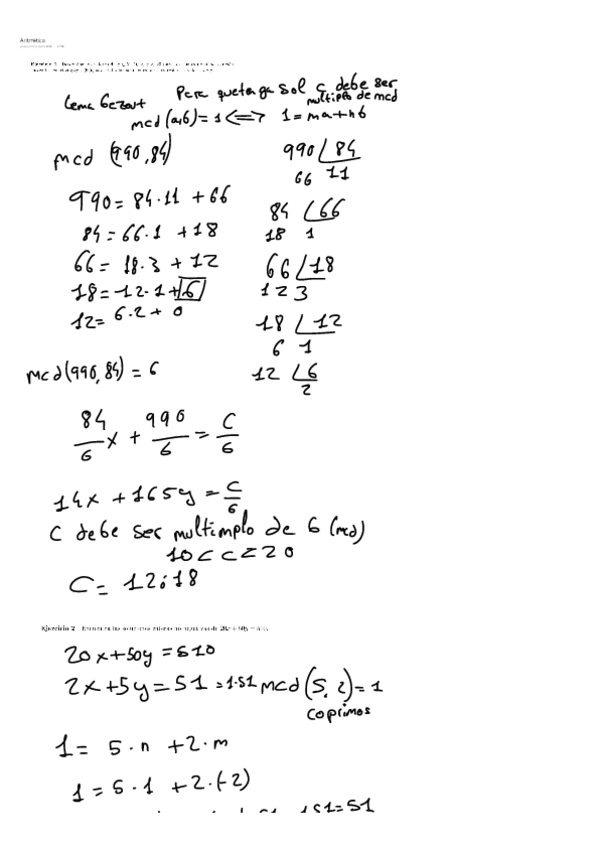 Aritmética
Ejercicio 1
Para que tenga sol c debe ser
multiplo de mcd
Lema Bezout
mcd(a,b)=1 <=> 1=ma+nb
mcd (990,84)
990 / 84
66 11
990=84·11+66
84 / 66
84=66·1+18
18 1
66=18·3+12
66/18
18=12·1+6
12 3
12=6·2+0
18 / 12
6 1
mcd(990,84)=6
12 / 6
2
84/6 x + 990/6 = C/6
14x+165y=C/6
C debe ser multimplo de 6 (mcd)
10<c<20
C= 12 i 18
Ejercicio 2
20x+50y=510
2x+5y=51=1·51 mcd(5,2)=1
coprimos
1= 5·n +2·m
1=5·1 +2·(-2)